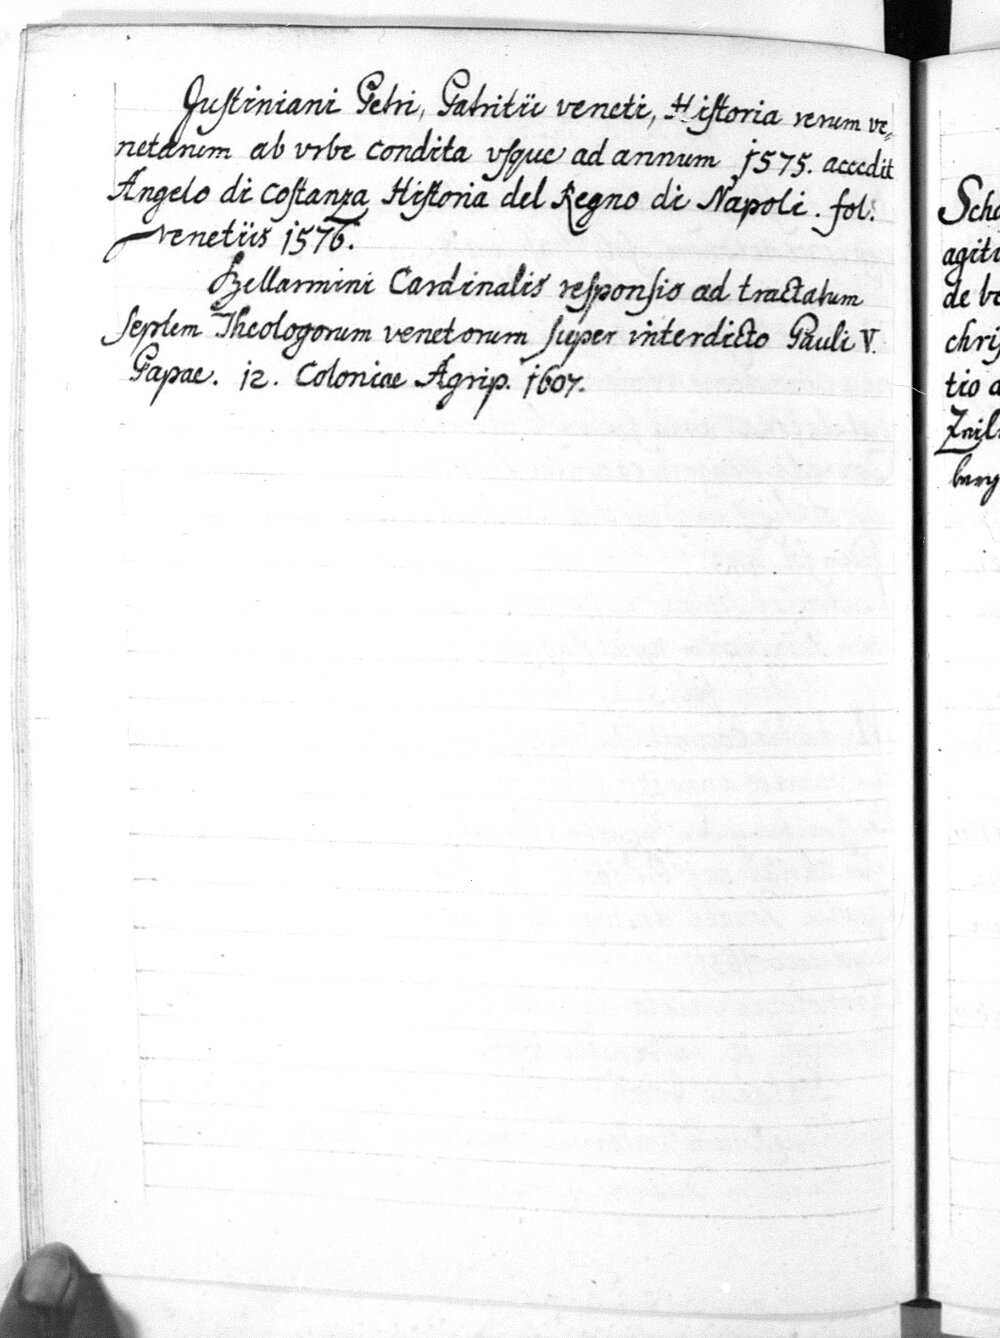 Justiniani Petri, Patritii veneti, Historia rerum ve⸗
netarum ab vrbe condita vsque ad annum 1575. accedit
Angelo di costanza Historia del Regno di Napoli. fol:
venetiis 1576.
Bellarmini Cardinalis responsio ad tractatum
septem Theologorum venetorum super interdicto Pauli V.
Papae. 12. Coloniae Agrip. 1607.
Scho
agiti
de be
chris
tio a
berg